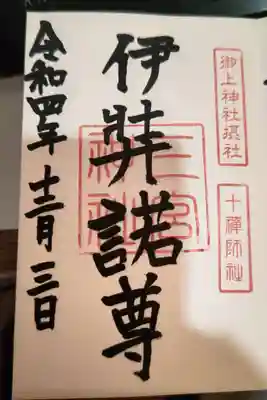 御上神社摂社
十禅師社
伊弉諾尊
三宮神社
令和四年十二月三日